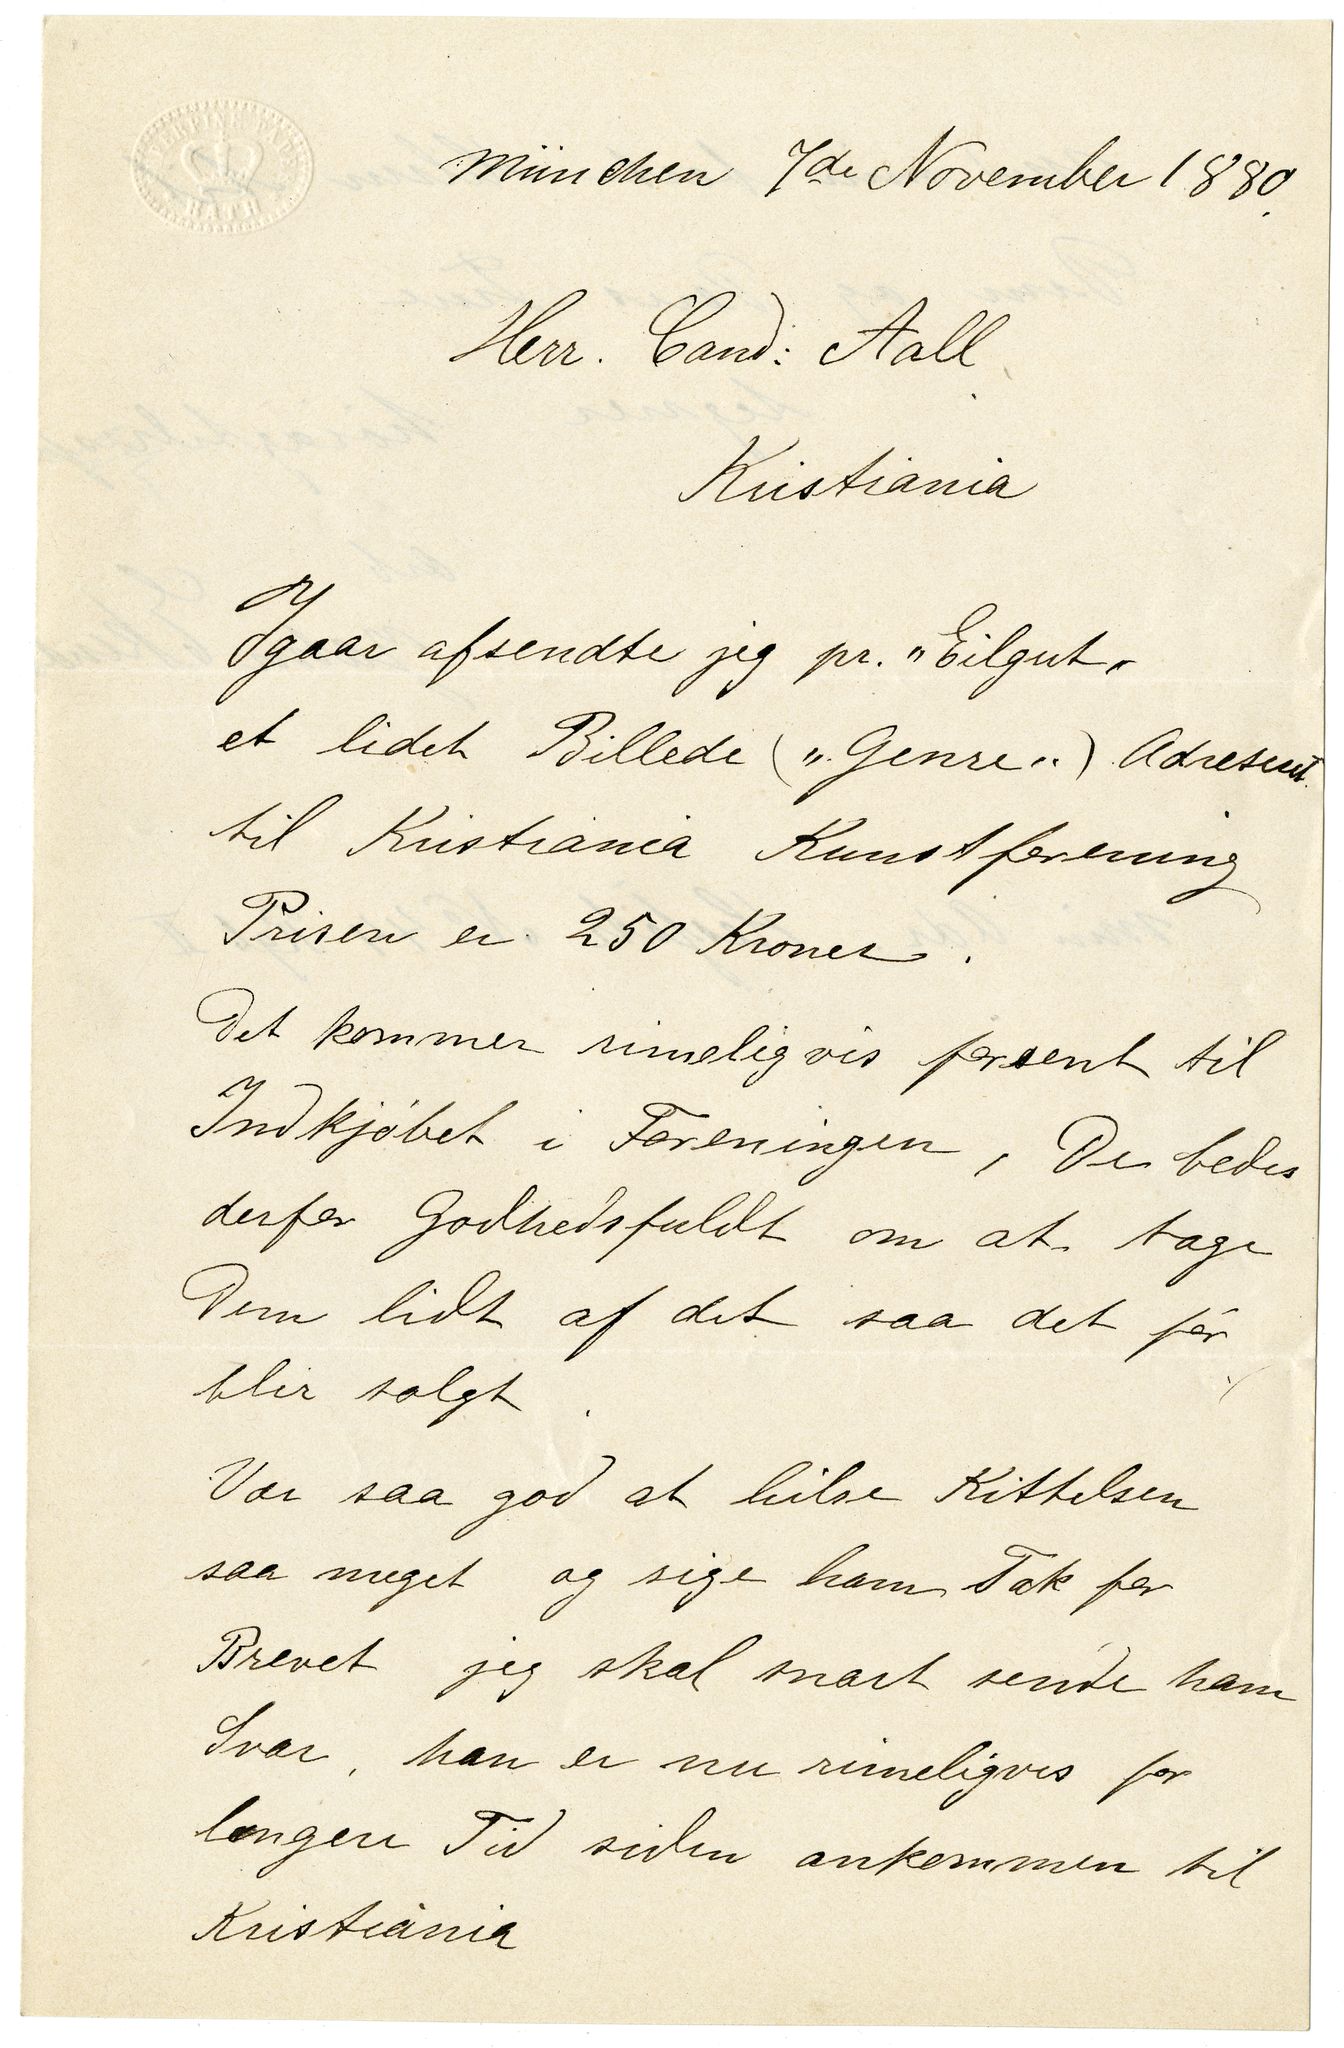 SUPERFINE PAPER
BATH
München 7de November 1880.
Herr. Cand: Aall
Kristiania
Igaar afsendte jeg pr. "Eilgut"
et lidet Billede ("Genre") Adressert.
til Kristiania Kunstforening
Prisen er 250 Kroner.
Det kommer rimeligvis forsent til
Indkjøbet i Foreningen, De bedes
derfor Godhedsfuldt om at tage
Dem lidt af det saa det før
blir solgt.
Vær saa god at hilse Kittelsen
saa meget og sige ham Tak for
Brevet jeg skal snart sende ham
Svar, han er nu rimeligvis for
længere Tid siden ankommen til
Kristiania